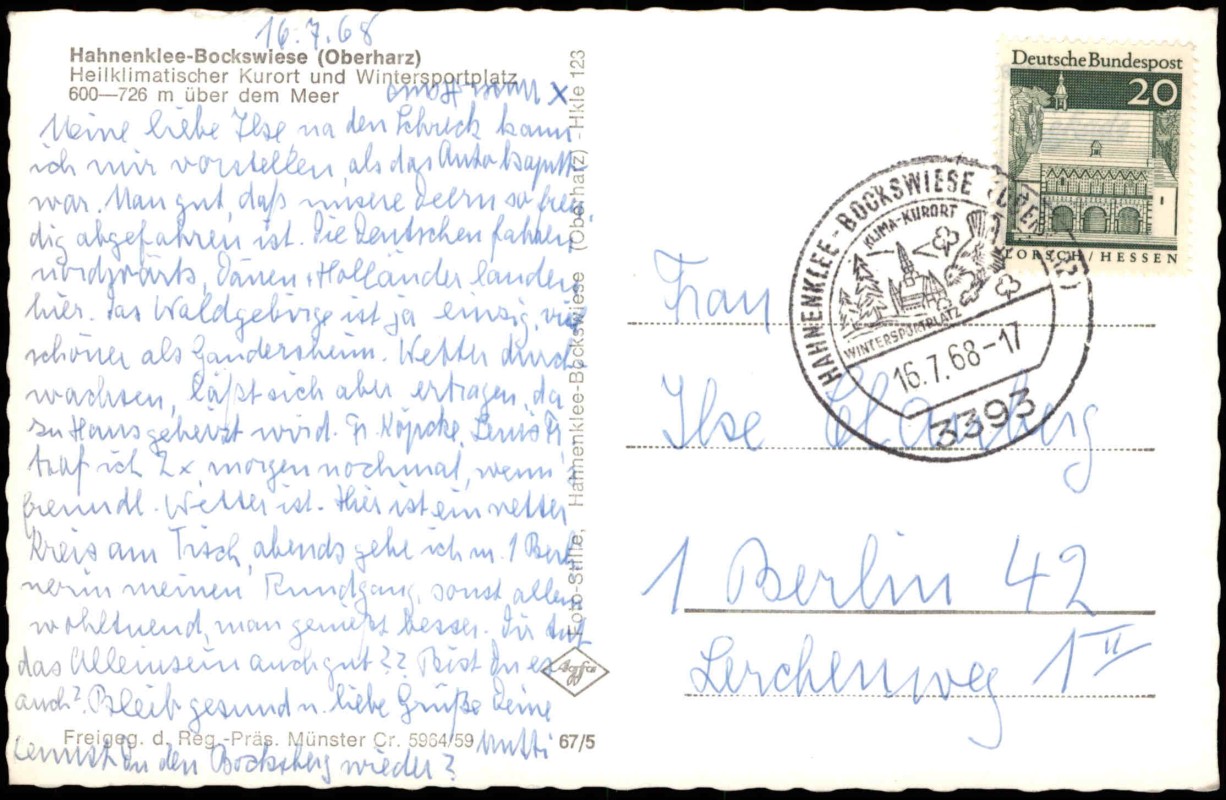 16.7.68
Hahnenklee-Bockswiese (Oberharz)
Heilklimatischer Kurort und Wintersportplatz
600—726 m über dem Meer
x
Meine liebe Ilse, na den Schreck kann
ich mir vorstellen, als das Auto kaputt
war. Man gut, daß unsere Deern so freu
dig abgefahren ist. Die Deutschen fahren
nordwärts, Dänen + Holländer landen
hier. Das Waldgebirge ist ja einzig, viel
schöner als Gandersheim. Wetter durch
wachsen, läßt sich aber ertragen, da
zu Haus geheizt wird. Fr. Köpcke,
traf ich 2x morgen nochmal, wenn
freundl. Wetter ist. Hier ist ein netter
Kreis am Tisch, abends gehe ich m. 1 Berli
nerin meinen Rundgang, sonst allein
wohltuend, man genießt besser. Dir tut
das Alleinsein auch gut?? Bist Du es
auch? Bleib gesund u. liebe Grüße Deine
Mutti
Kennst Du den Bocksberg wieder?
Freigeg. d. Reg.-Präs. Münster Cr. 5964/59
67/5
Foto-Stille, Hahnenklee-Bockswiese (Oberharz) - Hkle 123
Agfa
Deutsche Bundespost
20
LORSCH / HESSEN
HAHNENKLEE-BOCKSWIESE
KLIMA-KURORT
WINTERSPORTPLATZ
16.7.68-17
3393
Frau
Ilse
1 Berlin 42
Lerchenweg 1 II